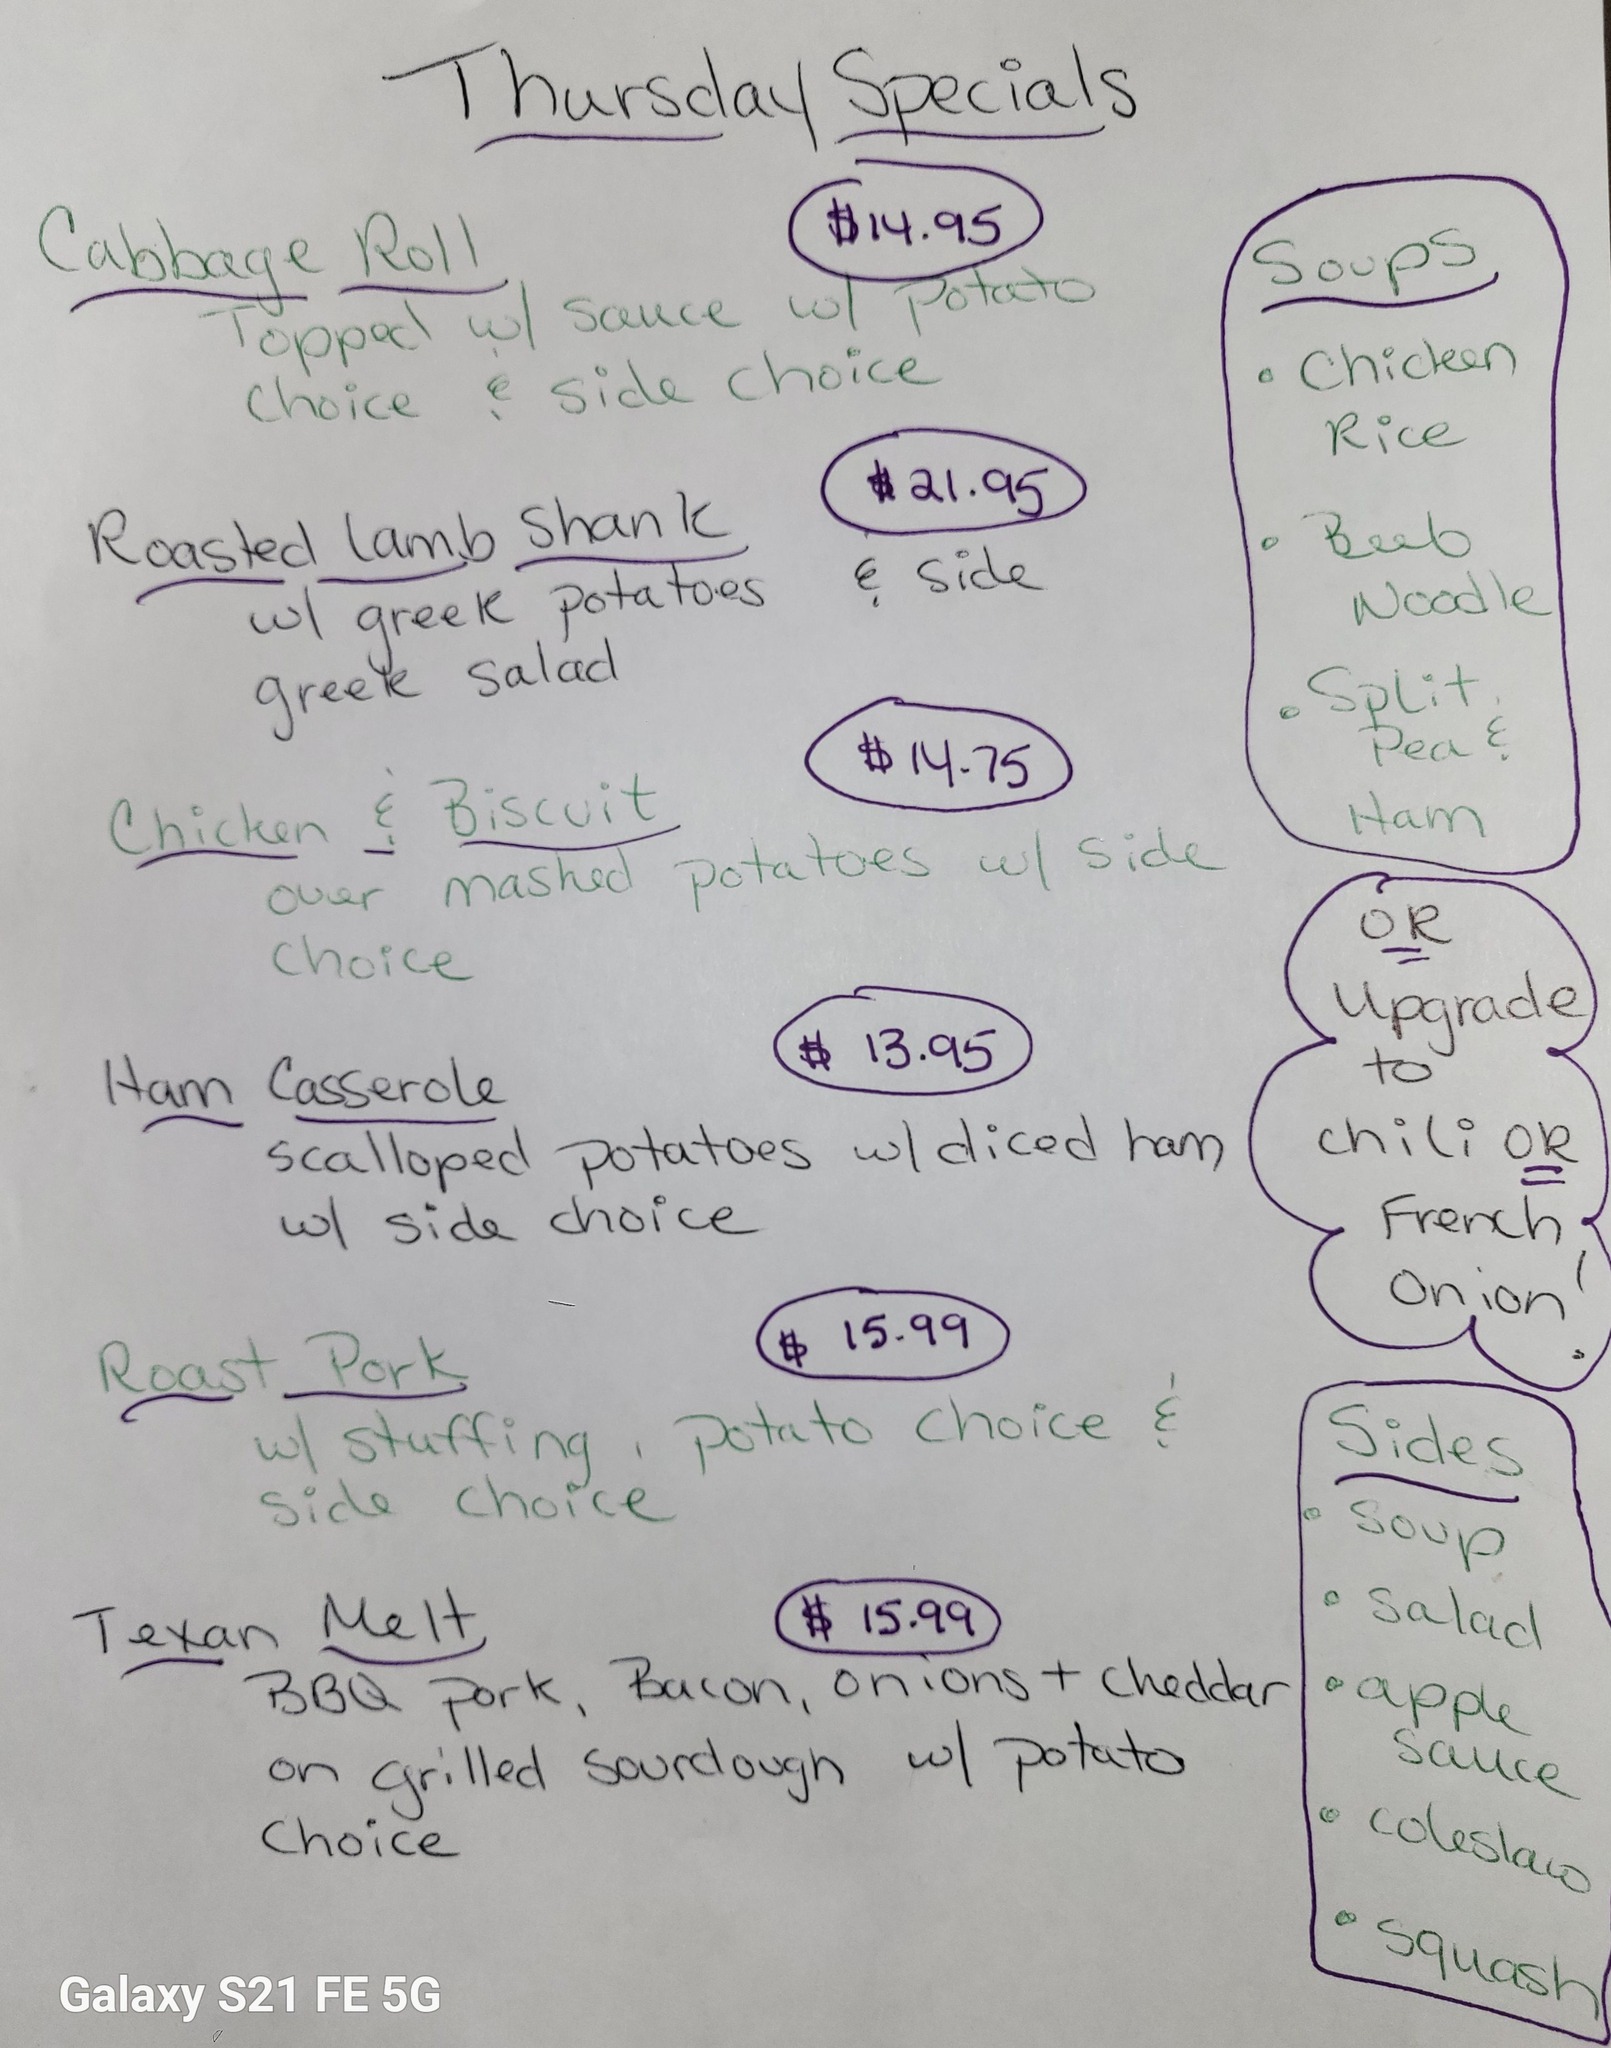 Thursday Specials
$14.95
Cabbage Roll
Topped w/ sauce w/ potato
choice & side choice
$21.95
Roasted lamb shank
w/ greek potatoes & side
greek salad
$14.75
Chicken & Biscuit
over mashed potatoes w/ side
choice
$13.95
Ham Casserole
scalloped potatoes w/ diced ham
w/ side choice
$15.99
Roast Pork
w/ stuffing, potato choice &
side choice
$15.99
Texan Melt
BBQ pork, Bacon, onions + cheddar
on grilled sourdough w/ potato
choice
Soups
• Chicken
Rice
• Beeb
Noodle
• Split
Pea &
Ham
OR
Upgrade
to
chili OR
French
Onion!
Sides
• Soup
• Salad
• apple
sauce
• coleslaw
• squash
Galaxy S21 FE 5G